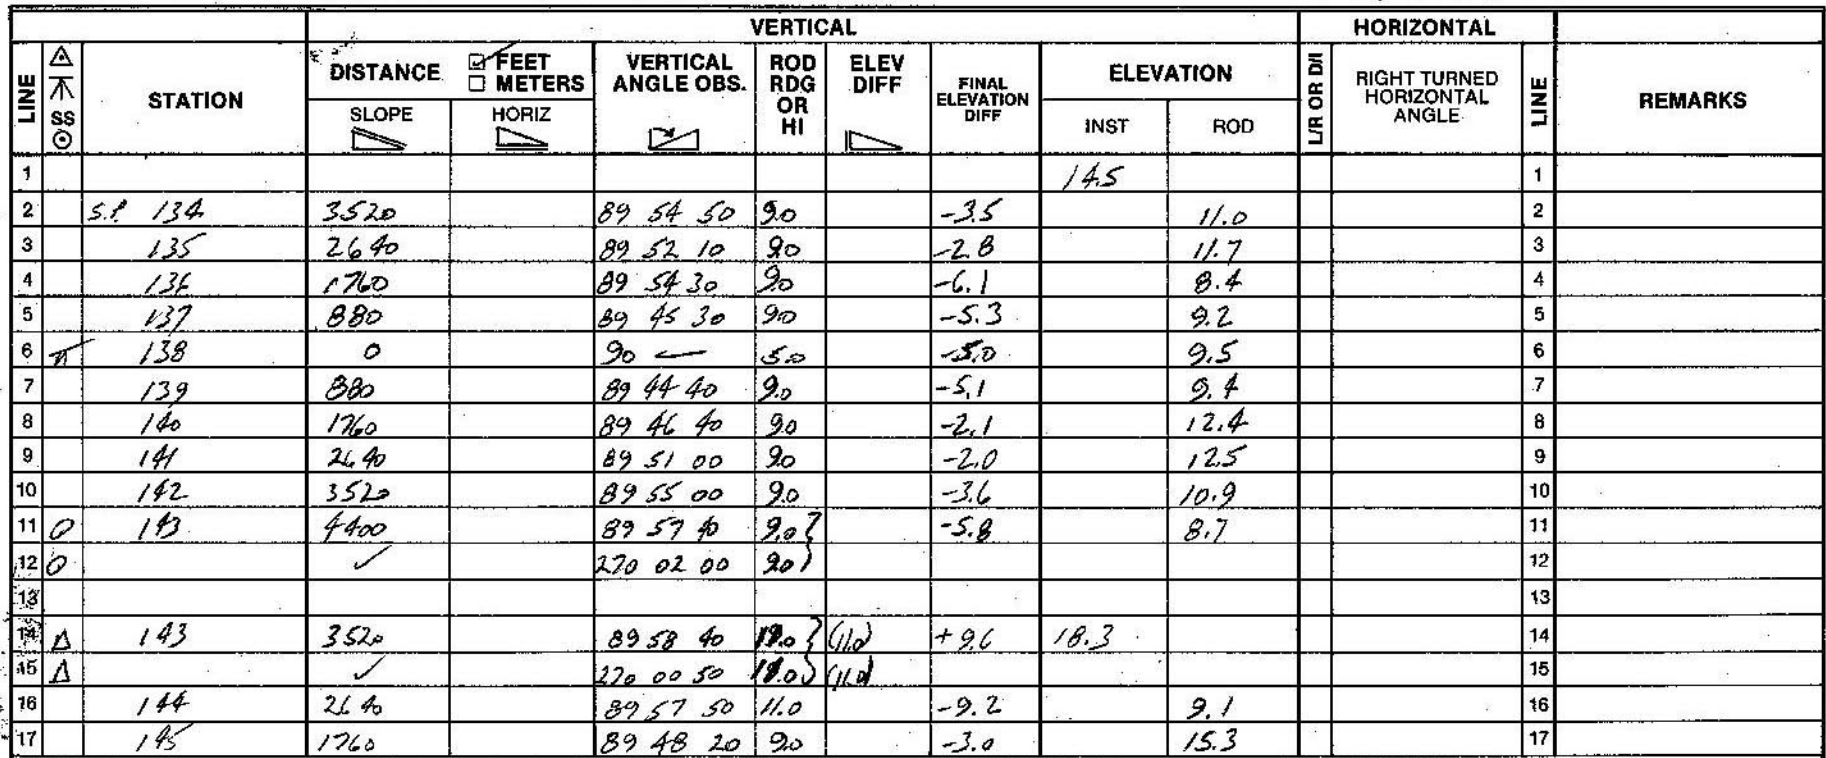 VERTICAL HORIZONTAL
LINE SS STATION DISTANCE FEET METERS SLOPE HORIZ VERTICAL ANGLE OBS. ROD RDG OR HI ELEV DIFF FINAL ELEVATION DIFF ELEVATION INST ROD L/R OR D/I RIGHT TURNED HORIZONTAL ANGLE LINE REMARKS
1 14.5 1
2 S.P. 134 3520 89 54 50 9.0 -3.5 11.0 2
3 135 2640 89 52 10 9.0 -2.8 11.7 3
4 136 1760 89 54 30 9.0 -6.1 8.4 4
5 137 880 89 45 30 9.0 -5.3 9.2 5
6 138 0 90 — 5.0 -5.0 9.5 6
7 139 880 89 44 40 9.0 -5.1 9.4 7
8 140 1760 89 46 40 9.0 -2.1 12.4 8
9 141 2640 89 51 00 9.0 -2.0 12.5 9
10 142 3520 89 55 00 9.0 -3.6 10.9 10
11 143 4400 89 57 40 9.0 } -5.8 8.7 11
12 ✓ 270 02 00 9.0 } 12
13 13
14 Δ 143 3520 89 58 40 11.0 } (11.0) +9.6 18.3 14
15 Δ ✓ 270 00 50 11.0 } (11.0) 15
16 144 2640 89 57 50 11.0 -9.2 9.1 16
17 145 1760 89 48 20 9.0 -3.0 15.3 17